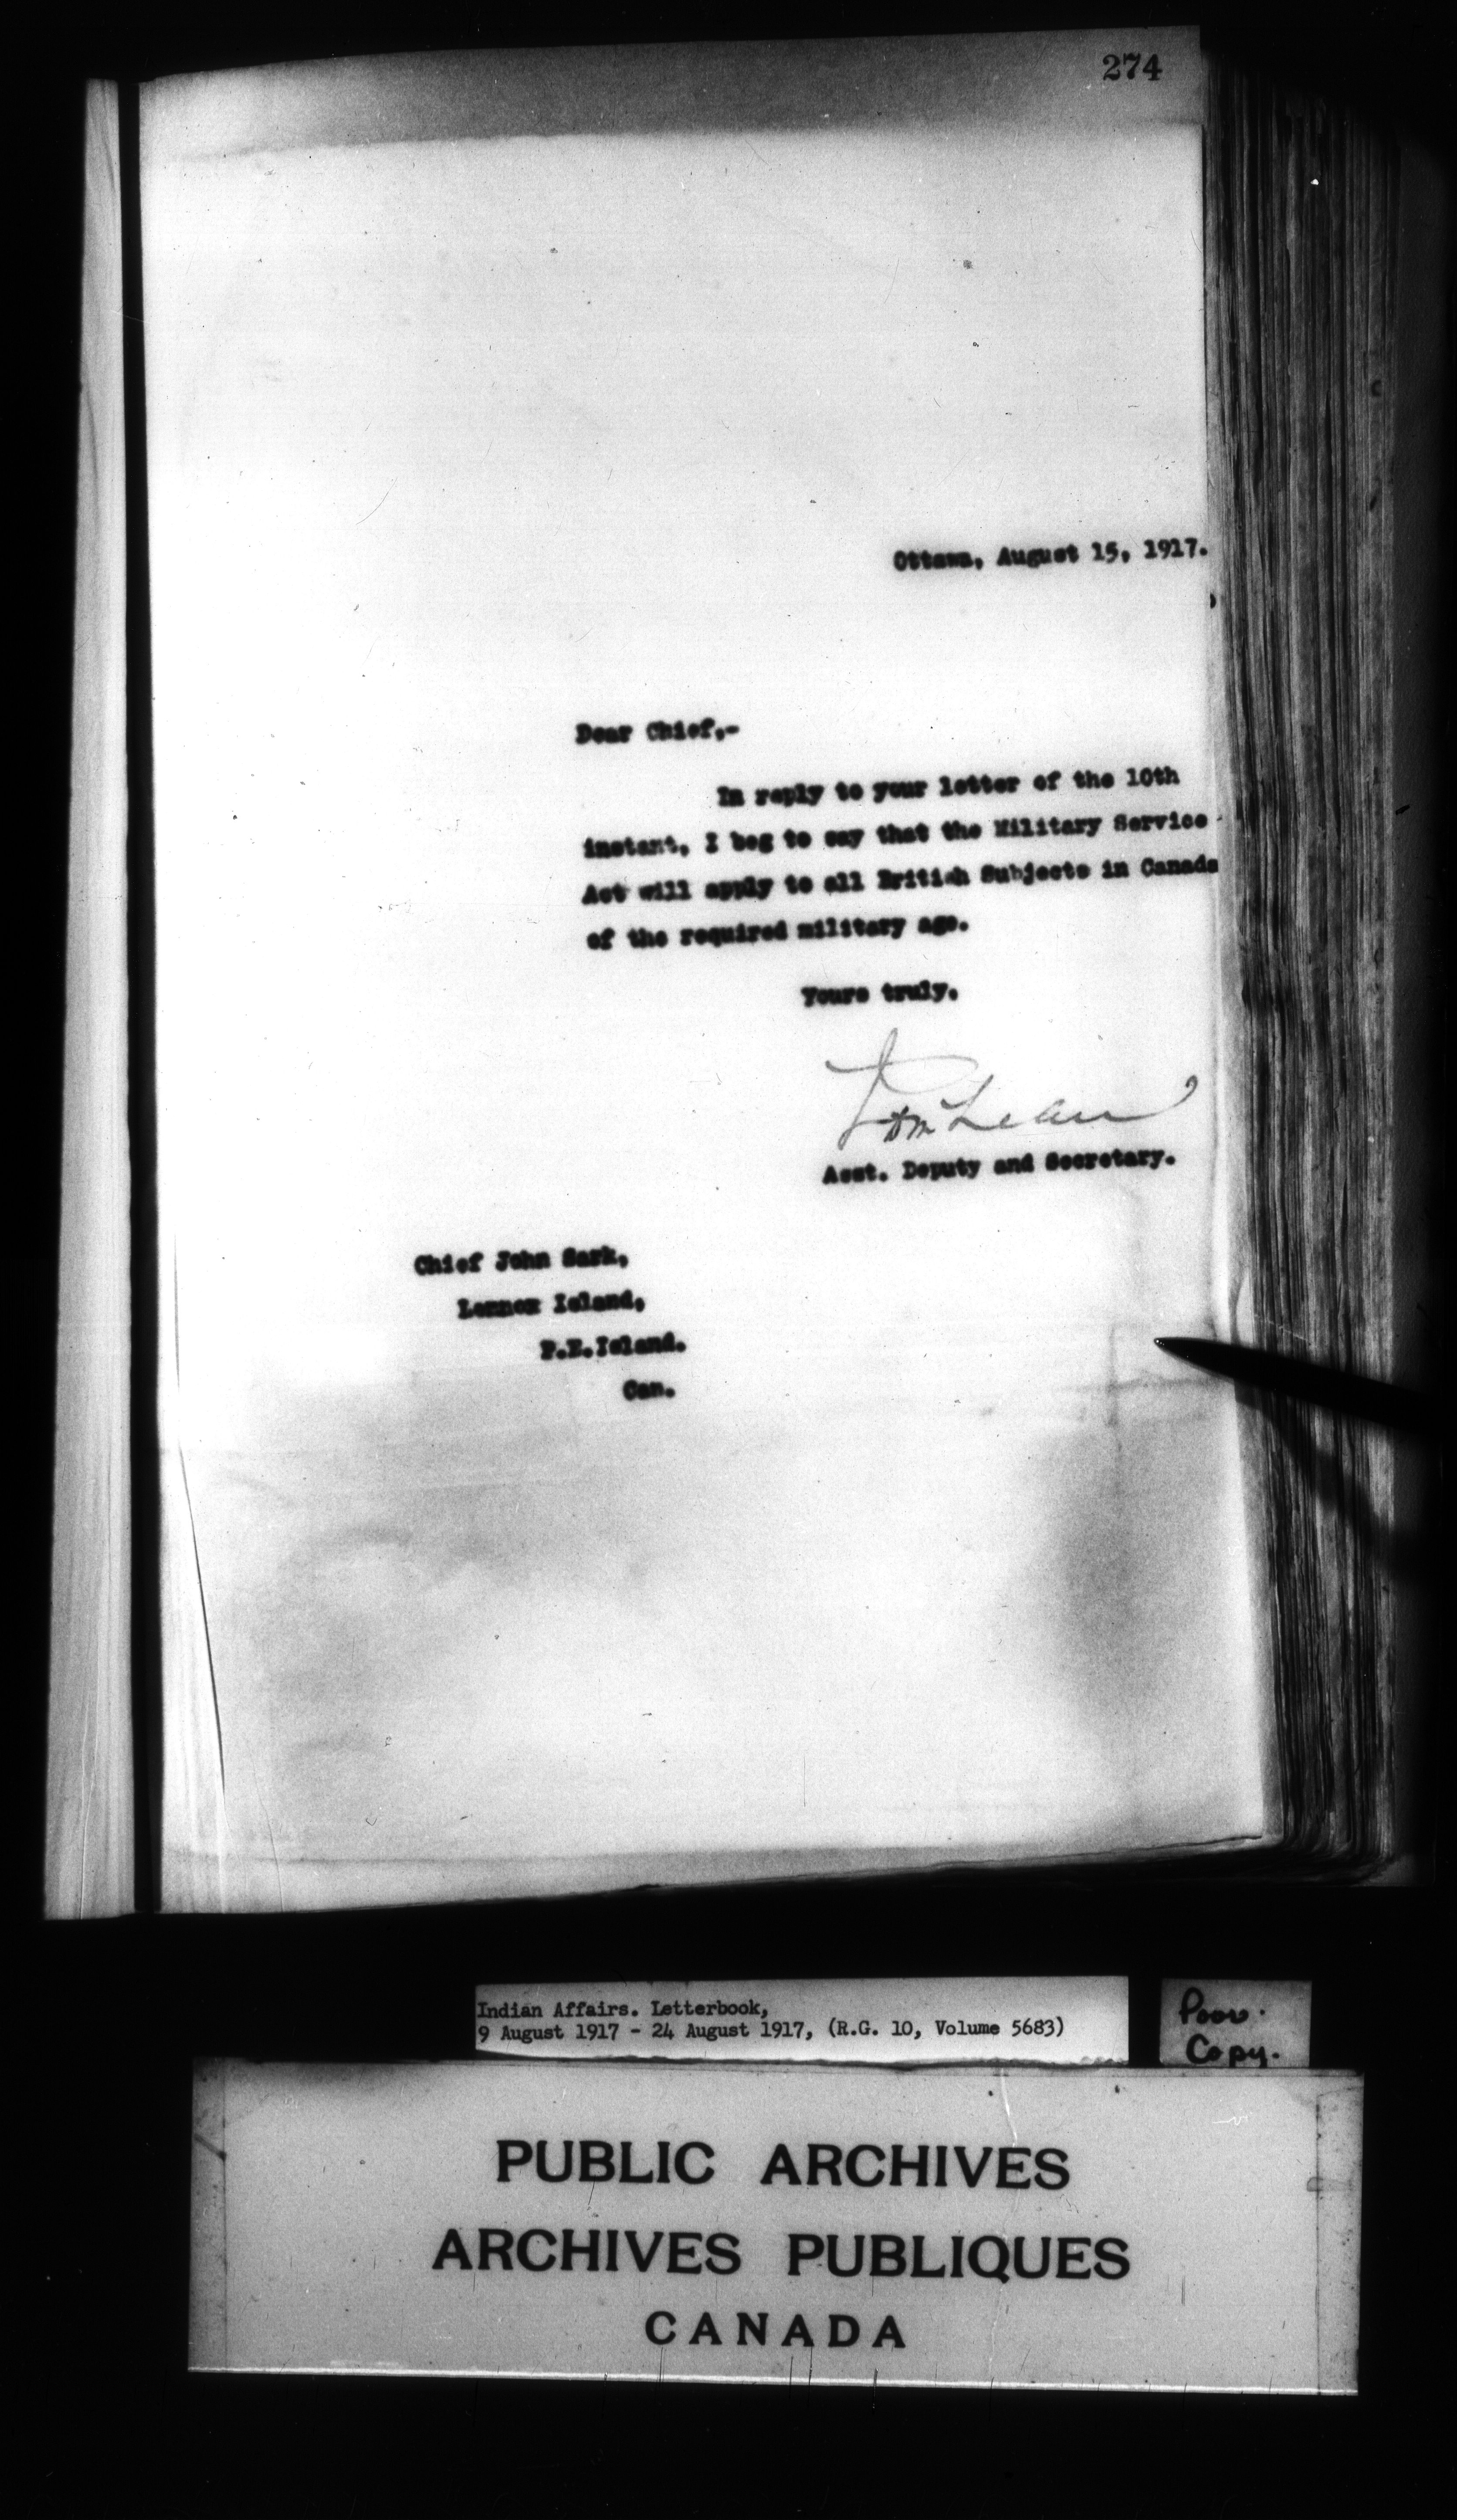 274
Ottawa, August 15, 1917.
Dear Chief,-
In reply to your letter of the 10th
instant, I beg to say that the Military Service
Act will apply to all British Subjects in Canada
of the required military age.
Yours truly,
Asst. Deputy and Secretary.
Chief John Sark,
Lennox Island,
P.E.Island.
Can.
Indian Affairs. Letterbook,
9 August 1917 - 24 August 1917, (R.G. 10, Volume 5683)
Poor.
Copy.
PUBLIC ARCHIVES
ARCHIVES PUBLIQUES
CANADA